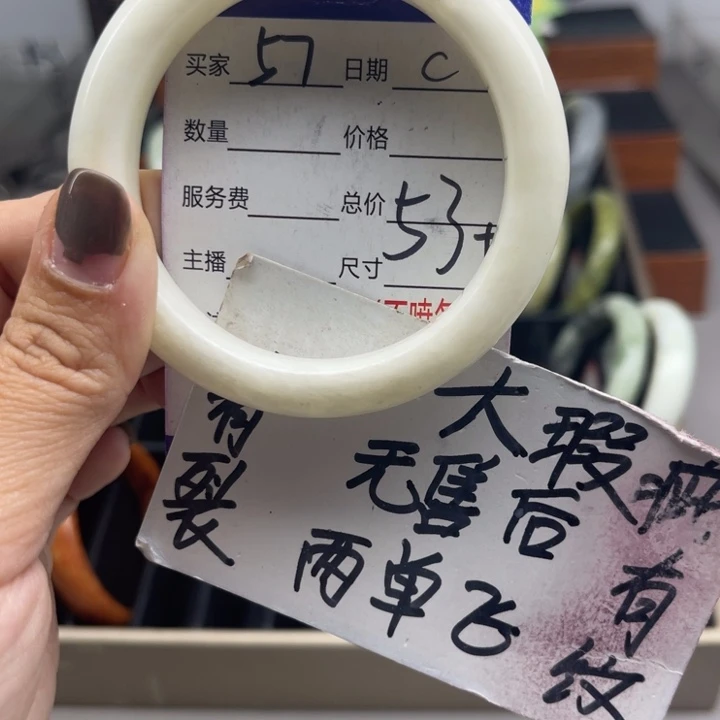 买家 57 日期 C
数量 价格
服务费 总价 53+
主播 尺寸
有裂
大瑕疵
无售后
两单飞
有纹